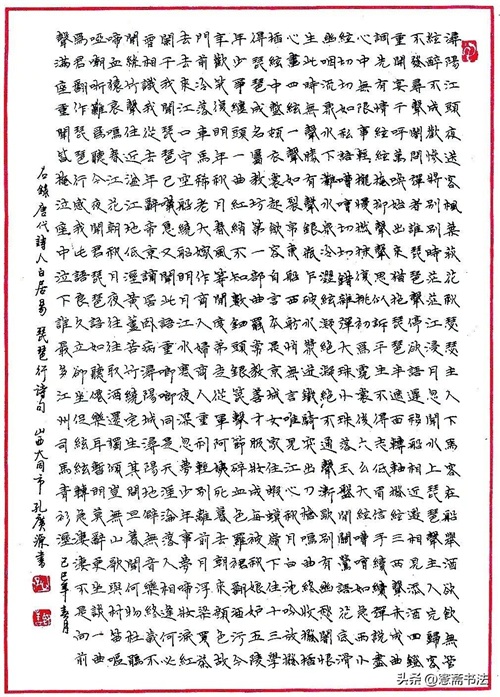 潯陽江頭夜送客楓葉荻花秋瑟瑟主人下馬客在船舉酒欲飲無管
絃醉不成歡慘將別別時茫茫江浸月忽聞水上琵琶聲主人忘歸客
不發尋聲暗問彈者誰琵琶聲停欲語遲移船相近邀相見添酒回燈
重開宴千呼萬喚始出來猶抱琵琶半遮面轉軸撥絃三兩聲未成曲
調先有情絃絃掩抑聲聲思似訴平生不得志低眉信手續續彈說盡
心中無限事輕攏慢撚抹復挑初為霓裳後六么大絃嘈嘈如急雨小
絃切切如私語嘈嘈切切錯雜彈大珠小珠落玉盤間關鶯語花底滑
幽咽泉流冰下難冰泉冷澀絃凝絕凝絕不通聲漸歇別有幽愁暗恨
生此時無聲勝有聲銀瓶乍破水漿迸鐵騎突出刀鎗鳴曲終收撥當
心畫四絃一聲如裂帛東船西舫悄無言唯見江心秋月白沈吟放撥
插絃中整頓衣裳起斂容自言本是京城女家在蝦蟆陵下住十三學
得琵琶成名屬教坊第一部曲罷常教善才服妝成每被秋娘妒五陵
年少爭纏頭一曲紅綃不知數鈿頭銀篦擊節碎血色羅裙翻酒污今
年歡笑復明年秋月春風等閒度弟走從軍阿姨死暮去朝來顏色故
門前冷落車馬稀老大嫁作商人婦商人重利輕別離前月浮梁買茶
去去來江口守空船繞船明月江水寒夜深忽夢少年事夢啼妝淚紅
闌干我聞琵琶已嘆息又聞此語重唧唧同是天涯淪落人相逢何必
曾相識我從去年辭帝京謫居臥病潯陽城潯陽地僻無音樂終歲不
聞絲竹聲住近湓江地低濕黃蘆苦竹繞宅生其間旦暮聞何物杜鵑
啼血猿哀鳴春江花朝秋月夜往往取酒還獨傾豈無山歌與村笛嘔
啞嘲哳難為聽今夜聞君琵琶語如聽仙樂耳暫明莫辭更坐彈一曲
為君翻作琵琶行感我此言良久立卻坐促絃絃轉急淒淒不似向前
聲滿座重聞皆掩泣座中泣下誰最多江州司馬青衫濕 己巳年春月
右錄唐代詩人白居易琵琶行詩句 山西大同市孔廣源書
头条 @謇斋书法